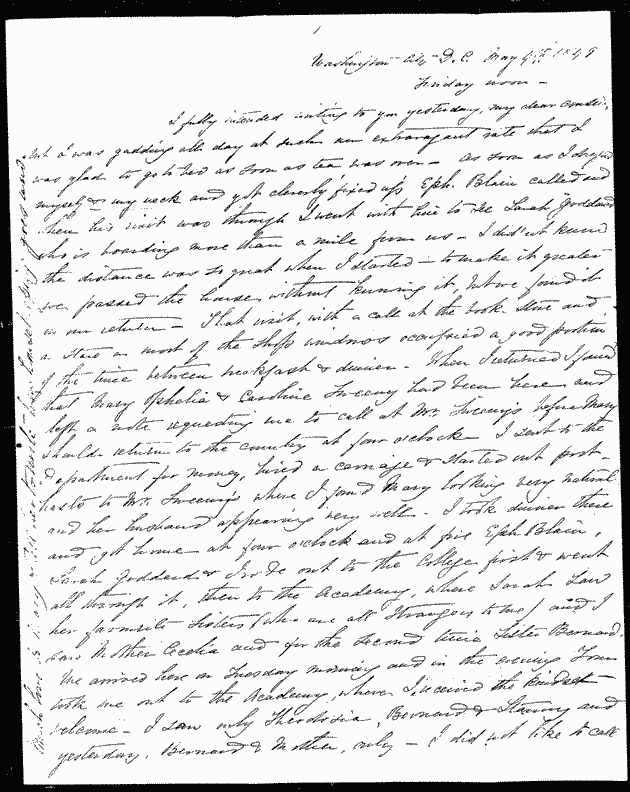 1
Washington City D. C. May 4th 1849
Friday noon -
I fully intended writing to you yesterday, my dear cousin,
but I was gadding all day at such an extravagant rate that I
was glad to go to bed as soon as tea was over - as soon as I
myself & my neck and got cleverly fixed up, Eph. Blain called and
when his visit was through I went with him to see Sarah Goddard
who is boarding more than a mile from us - I didn't know
the distance was so great when I started - to make it greater
we passed the house without knowing it, but we found it
in our return - That visit, with a call at the book store and
a stare in most of the shop windows occupied a good portion
of the time between breakfast & dinner. When I returned I found
that Mary Ophelia & Caroline Sweeny had been here and
left a note requesting me to call at Mr. Sweeny's before Mary
should return to the country at four o'clock - I sent to the
department for money, hired a carriage & started out post-
haste to Mr. Sweeny's where I found Mary looking very natural
and her husband appearing very well. I took dinner there
and got home at four o'clock and at five Eph Blain,
Sarah Goddard & I rode out to the College first & went
all through it, then to the Academy, where Sarah saw
her favourite Sisters (who are all strangers to me) and I
saw Mother Cecelia and for the second time Sister Bernard.
We arrived here on Tuesday morning and in the evening
took me out to the Academy, where I received the kindest
welcome - I saw only Bernard & and
yesterday, Bernard & Mother, only - I did not like to call